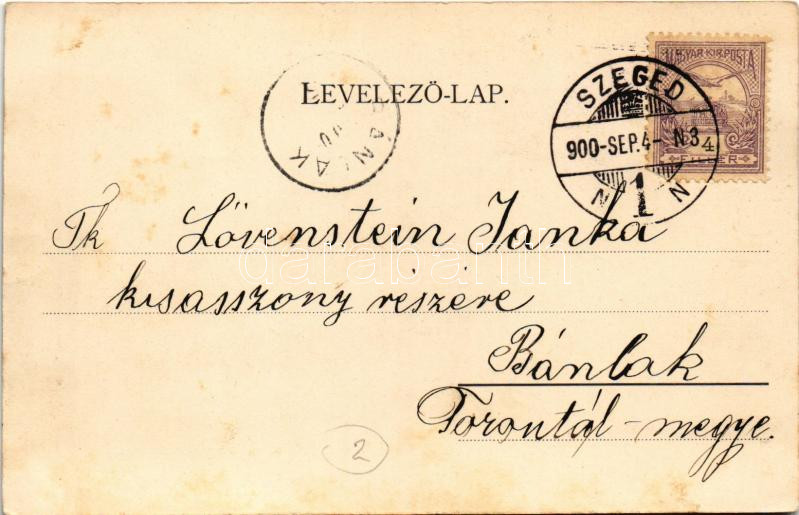 MAGYAR KIR. POSTA
SZEGED
LEVELEZŐ-LAP.
900-SEP.4- N3
4
FILLÉR
BÁNLAK
N 1 N
Tk Lövenstein Janka
kisasszony részére
darabanth
Bánlak
Torontál-megye.
2